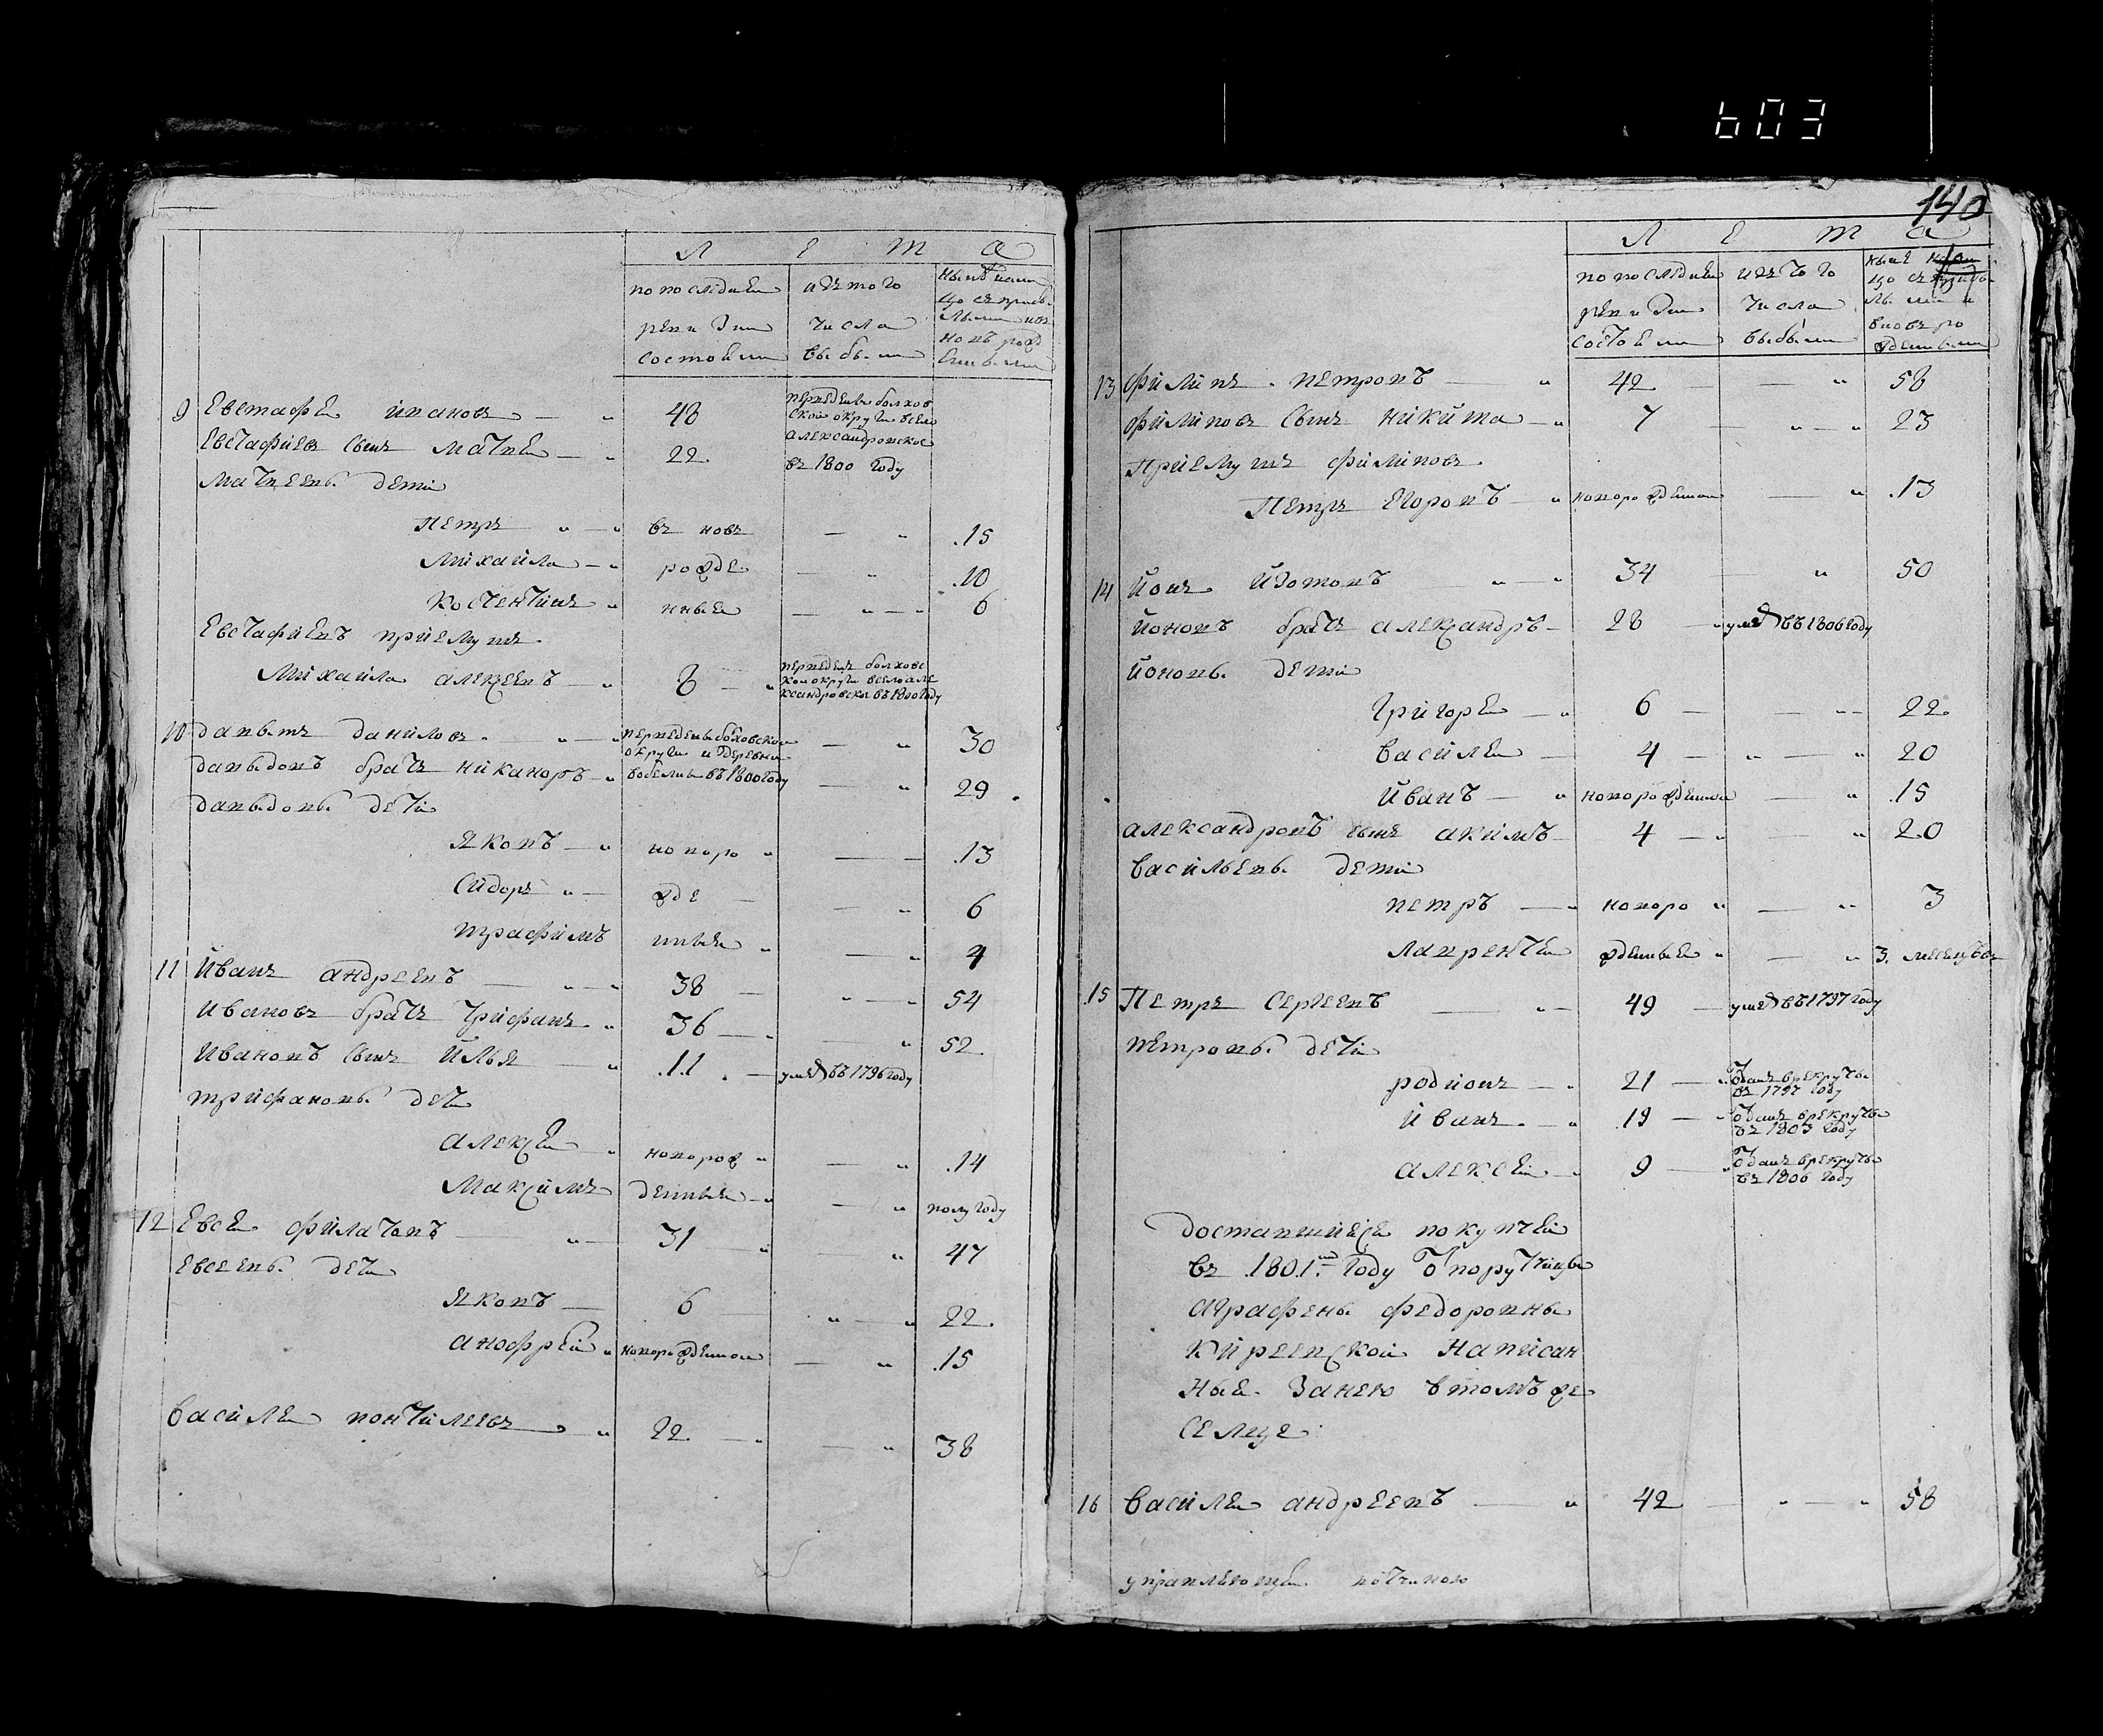 603
140
Л Е Т А
по последней
ревизии
состояли
из того
числа
выбыли
9 Евстафей Иванов 48 переведены болхов
ской округи в село
Александровское
в 1800 году
Евстафиев сын Матвей 22
Матвеевы дети
Петр в новь .15
Михайла рожде .10
Костентин нные 6
Евстафиевъ приемуш
Михайла Алексеевъ 8 переведен болховс
кой округи в село Але
ксандровское въ 1800 году
10 Давыт Данилов переведены болховской
округи из деревни
въ 1800 году 30
Давыдовъ брат Никаноръ 29
Давыдовы дети
Яковъ новоро .13
Сидор жде 6
Трафимъ нные 4
11 Иван Андреевъ 38 54
Иванов брат Трифан 36 52
Ивановъ сын Илья .11. умре въ 1796 году
Трифановы дети
Алексей новорож .14
Максим денные полугоду
12 Евсей Филатовъ 31 47
Евсеевы дети
Яковъ 6 22
Анофрей новорожденной .15
Василей Понтилеев 22 38
Л Е Т А
по последней
ревизии
состояли
из того
числа
выбыли
13 Филип Петровъ 42 58
Филипов сын Никита 7 23
Приемуш Филипов
Петр Егоровъ новорожденной .13
14 Йон Изотовъ 34 50
Йоновъ брат Александръ 28 умре въ 1806 году
Йоновы дети
Григорей 6 22
Василей 4 20
Иванъ новорожденной .15
Александровъ сын Акимъ 4 20
Васильевы дети
Петръ новоро 3
Лаврентей жденные 3. месецов
.15 Петр Сергеевъ 49 умре въ 1797 году
Петровы дети
Родион 21 отдан в рекруты
в 1797 году
Иван 19 отдан в рекруты
в 1803 году
Алексей 9 отдан в рекруты
в 1806 году
доставшийеся по купчей
в 1801м году от порутчицы
Аграфены Федоровны
Киреевской написан
ные за нею в томъ же
селце
16 Василей Андреевъ 42 58
управляющей вотчиною